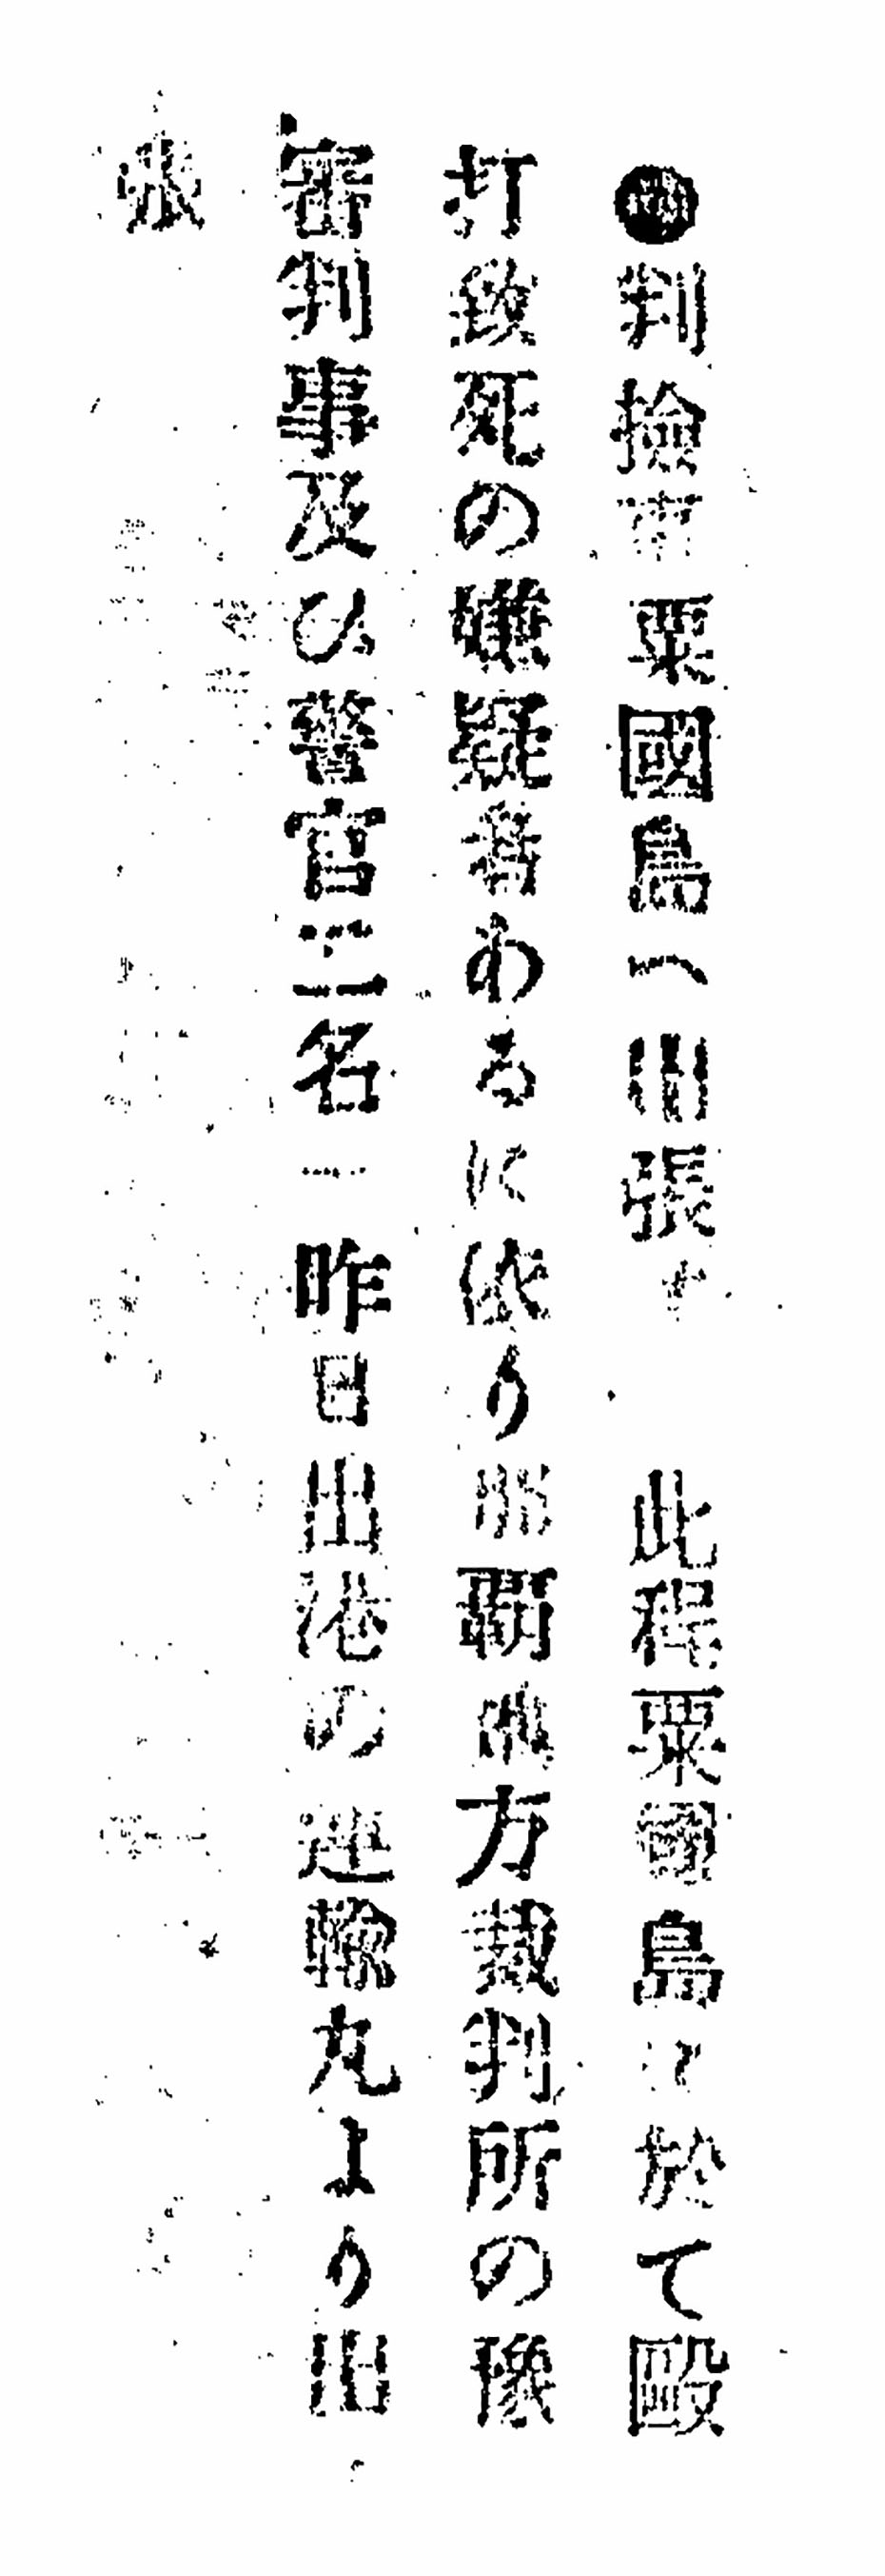 ●判撿事粟國島へ出張す 此程粟國島に於て毆
打致死の嫌疑者あるに依り那覇地方裁判所の豫
審判事及ひ警官二名一昨日出港の運輸丸より出
張